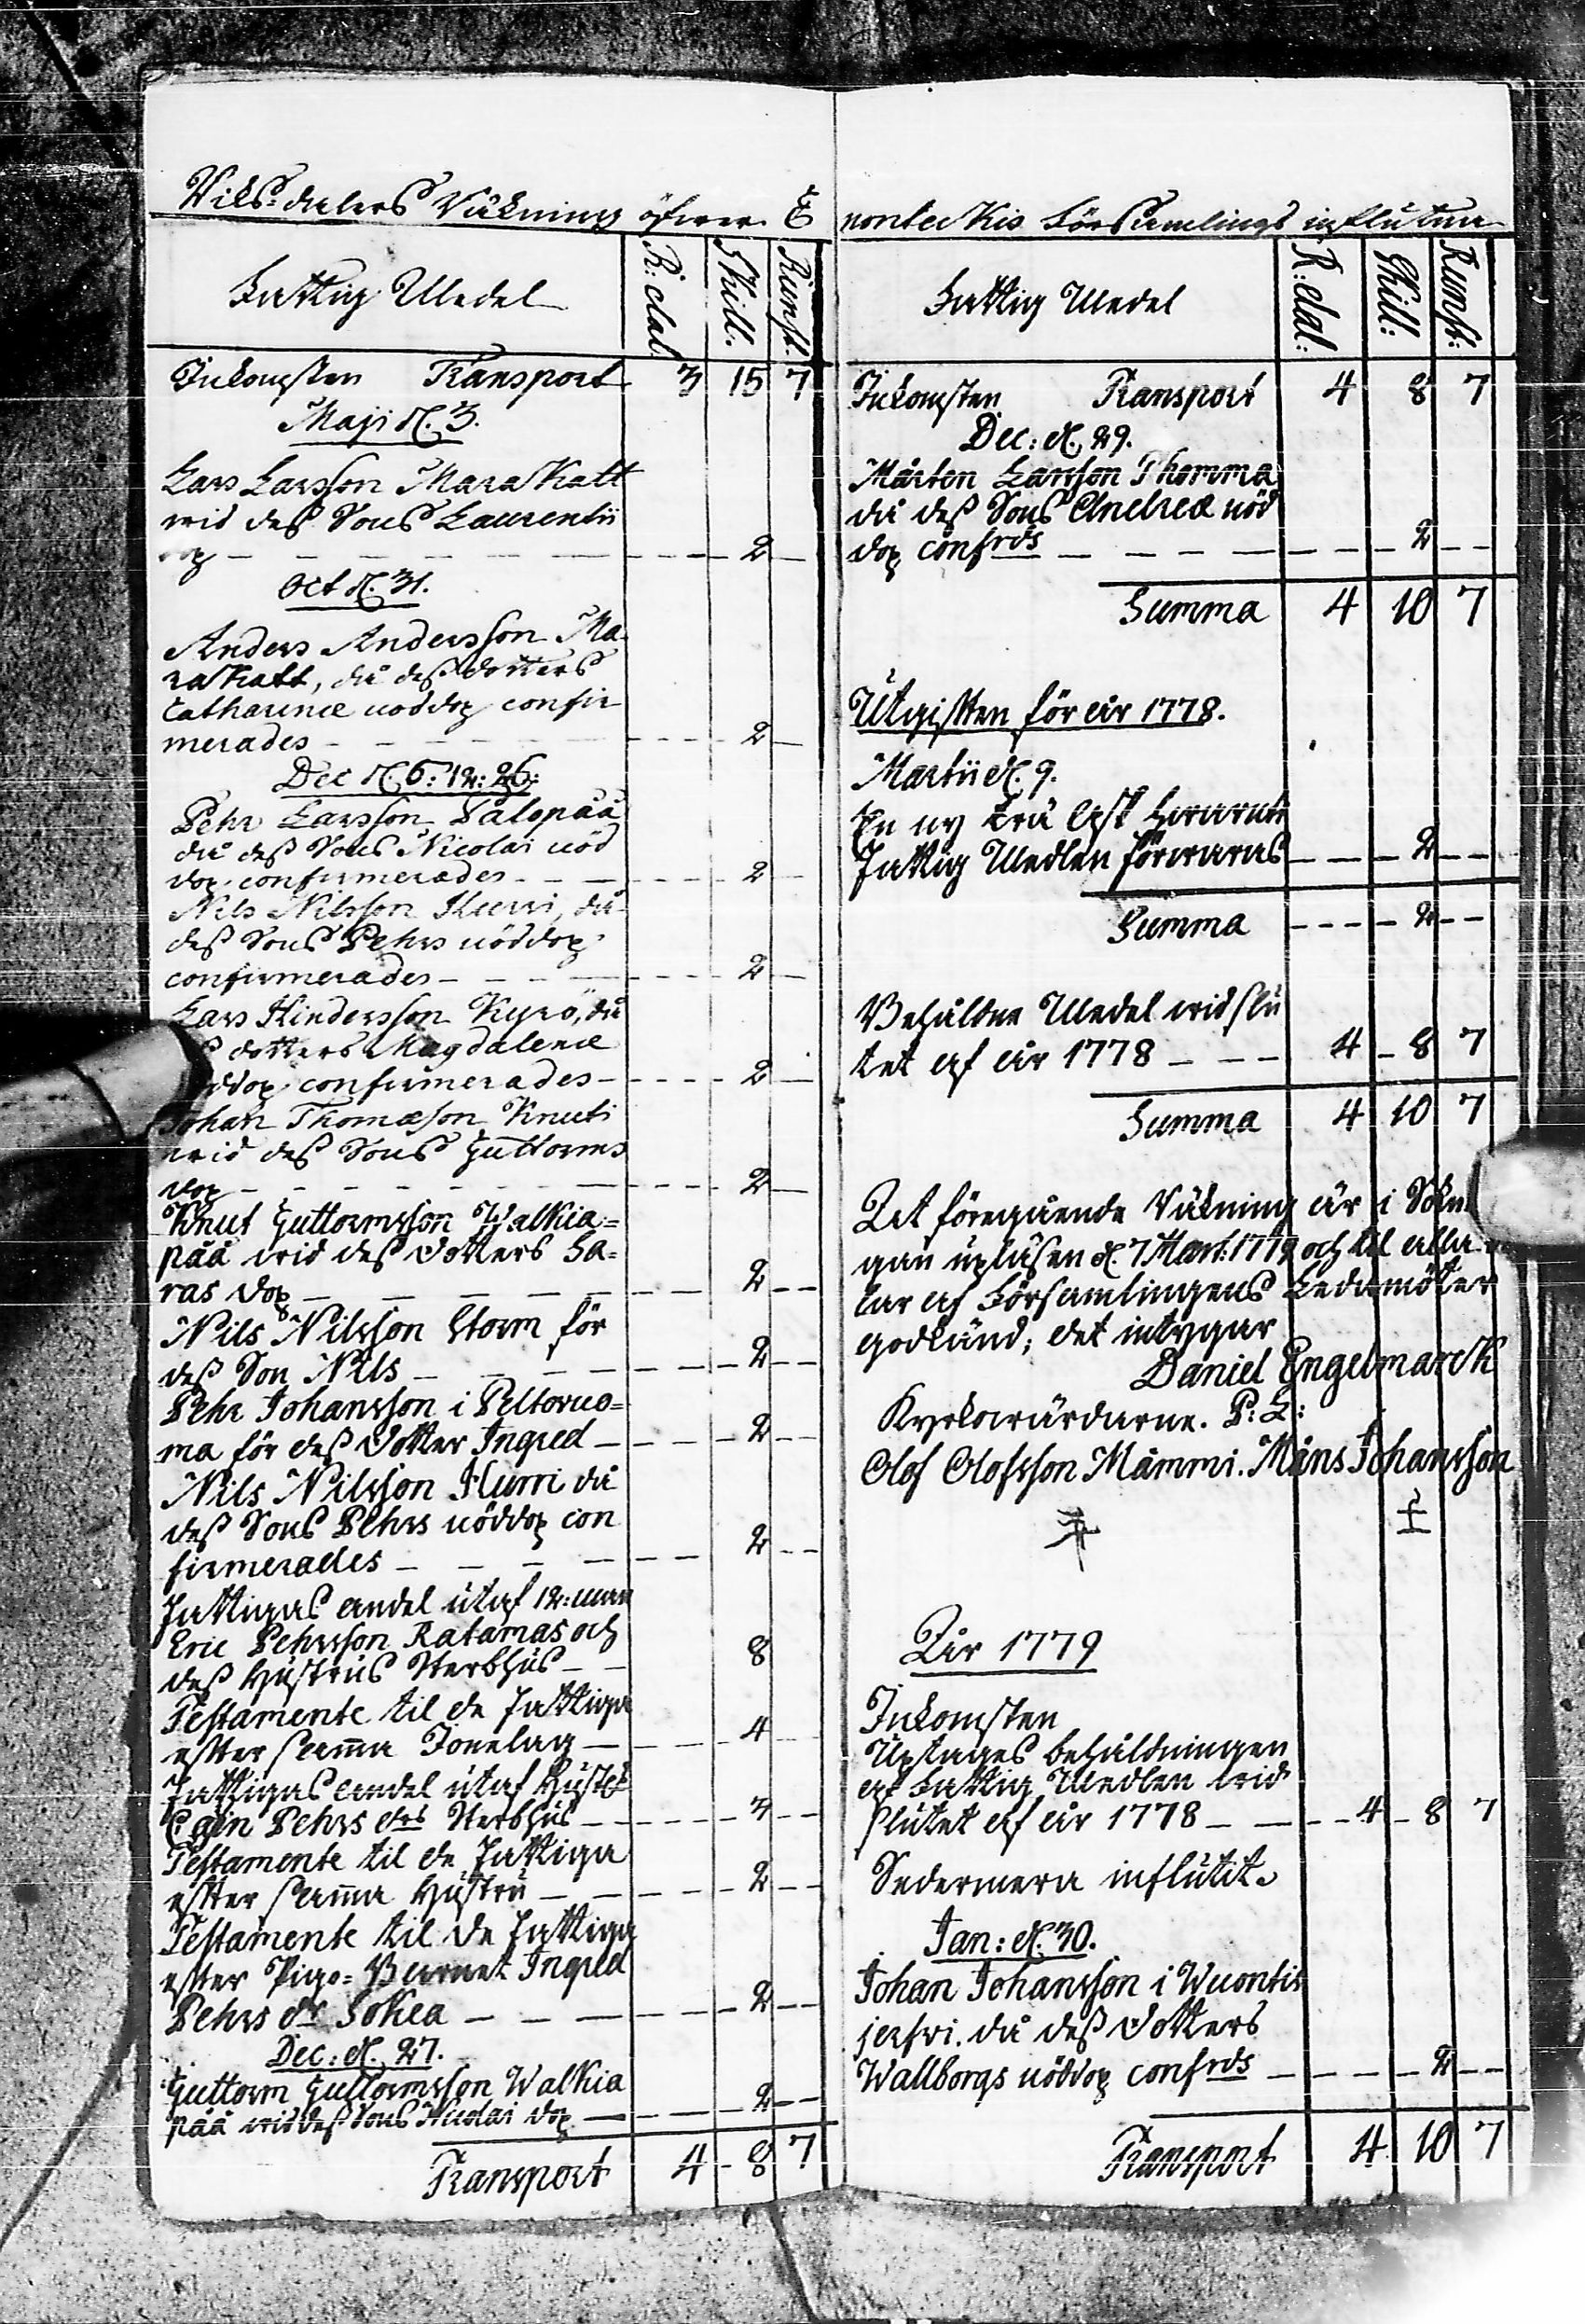 Riks-dalers Räkning öfwer E
Fattig Medel R:dal. Skill. Runst.
Inkomsten Transport 3 15 7
Maji d. 3.
Lars Larsson MaraKatt
wid deß Sons Laurentii
dop - - - 2 -
Oct d. 31.
Anders Andersson Ma
raKatt, då deß dotters
Catharinæ nöddop confir
merades - - - 2 -
Dec d. 6: 12: 26:
Pehr Larsson Palopää
då deß Sons Nicolai nöd
dop confirmerades - - - 2 -
Nils Nilsson Hurri, då
deß Sons Pehrs nöddop
confirmerades - - - 2 -
Lars Hindersson Kyrö, då
dotters Magdalenæ
confirmerades - - - 2 -
Johan Thomæson Knuti
wid deß Sons Guttorms
dop - - - 2 -
Knut Guttormsson Walkia=
pää wid deß dotters Sa=
ras dop - - - 2 - -
Nils Nilsson Storm för
deß Son Nils - - - 2 - -
Pehr Johansson i Peltovuo=
ma för deß dotter Ingred - - - 2 - -
Nils Nilsson Hurri då
deß Sons Pehrs nöddop con
firmerades - - - 2 - -
Fattigas andel utaf 12:man
Eric Pehrsson Ratamas och
deß Hustrus Sterbhus - - 8
Testamente til de Fattiga
efter samma - - - 4 - -
Fattigas andel utaf Hustr
Pehrs drs Sterbhus - - - 3 - -
Testamente til de Fattiga
efter samma Hustru - - - 2 - -
Testamente til de Fattiga
efter Pigo=Barnet Ingred
Pehrs dr Sokea - - - 2 - -
Dec: d. 27.
Guttorm Guttormsson Walkia
pää wid deß Sons Nicolai dop - - - 2 - -
Transport 4 - 8 7
nonteKis Församlings influtna
Fattig Medel R:dal: Skill: Runst:
Inkomsten Transport 4 8 7
Dec: d. 29.
Mårten Larsson Thomma
då deß Sons Andreæ nöd
dop confrds - - - 2 - -
Summa 4 10 7
Utgiften för år 1778.
Martii d. 9.
En ny Trä hwaruti
Fattig Medlen förwaras - - - 2 - -
Summa - - - 2 - -
Behåldne Medel wid slu
tet af år 1778 - - - 4 - 8 7
Summa 4 10 7
Det föregående Räkning är i
upläsen d. 7 Mart: 1779 och til alla
lar af Församlingens Ledamöter
godkänd; det intygar
Daniel Engelmarck
Kyrkowärdarne. P: L:
Olof Olofsson Mämmi. Måns Johansson
År 1779
Inkomsten
Uptages behåldningen
af Fattig Medlen wid
slutet af år 1778 - - - 4 - 8 7
Sedermera influtit.
Jan: d. 30.
Johan Johansson i Wuontis
jerfwi. då deß dotters
Wallborgs nöddop confrds - - - 2 - -
Transport 4 10 7